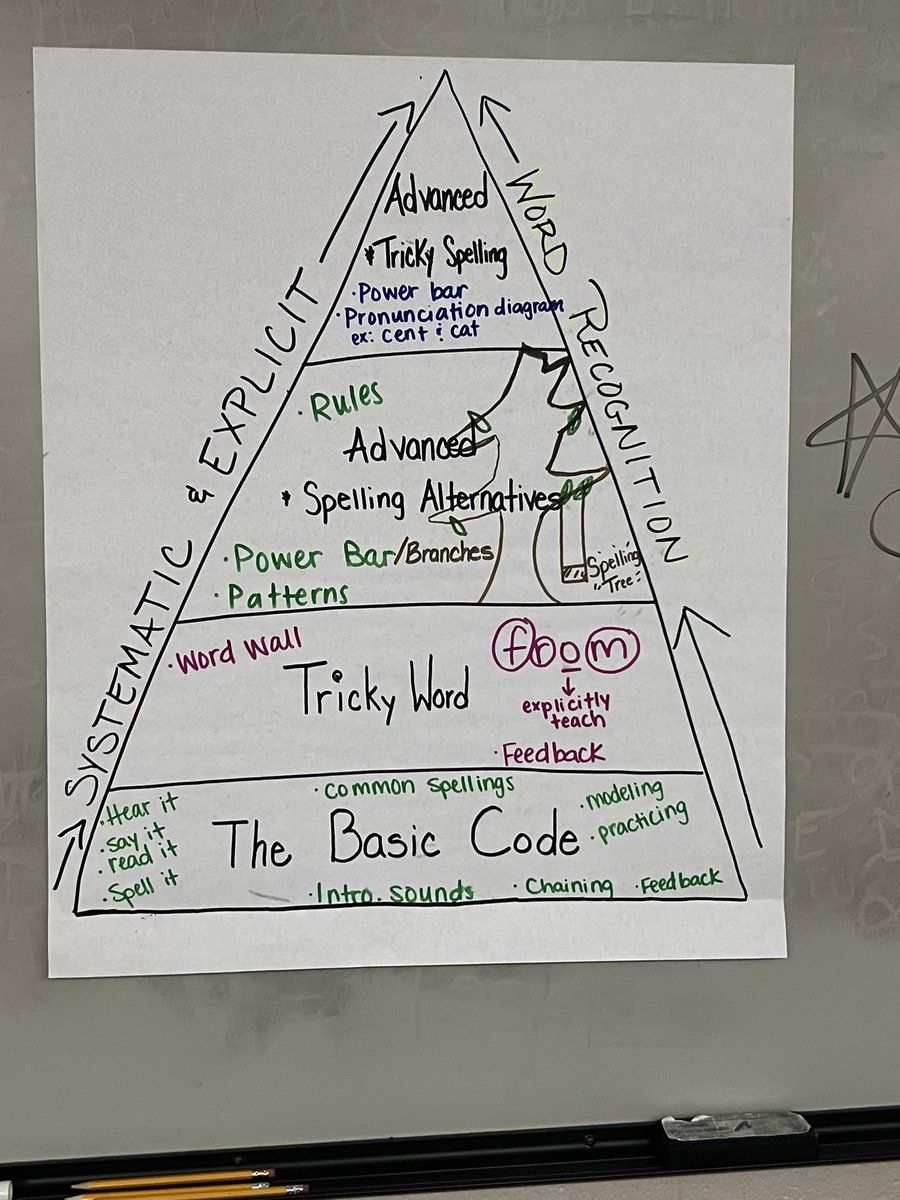 SYSTEMATIC & EXPLICIT
WORD RECOGNITION
Advanced
* Tricky Spelling
· Power bar
· Pronunciation diagram
ex: cent & cat
· Rules
Advanced
* Spelling Alternatives
· Power Bar/Branches
· Patterns
Spelling
"Tree"
· Word Wall
Tricky Word
from
explicitly
teach
· Feedback
· Common Spellings
· Hear it
· say it
· read it
· Spell it
The Basic Code
· modeling
· practicing
· Intro. sounds
· Chaining
· Feedback